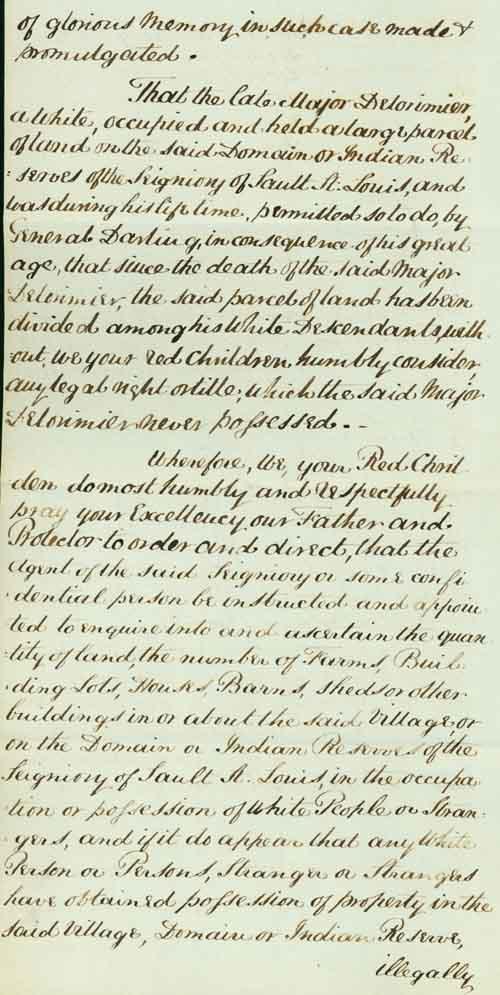 of glorious Memory in such case made &
promulgated.
That the late Major Delorimier,
a White, occupied and held a large parcel
of land on the said Domain or Indian Re
=serves of the Seigniory of Sault St. Louis, and
was during his life time, permitted so to do, by
General Darling, in consequence of his great
age, that since the death of the said Major
Delorimier, the said parcel of land has been
divided among his White Descendants, with
-out, We your red Children humbly consider,
any legal right or title, which the said Major
Delorimier never possessed. -
Wherefore, We, your Red Chril
den do most humbly and respectfully
pray your Excellency, our Father and
Protector to order and direct, that the
Agent of the said Seigniory or some confi
dential person be instructed and appoin
ted to enquire into and ascertain the quan
=tity of land, the number of Farms, Buil
ding Lots, Houses, Barns, sheds or other
buildings in or about the said Village, or
on the Domain or Indian Reserves of the
Seigniory of Sault St. Louis, in the occupa
tion or possession of White People or Stran=
gers, and if it do appear that any White
Person or Persons, Stranger or Strangers
have obtained possession of property in the
said Village, Domain or Indian Reserve,
illegally